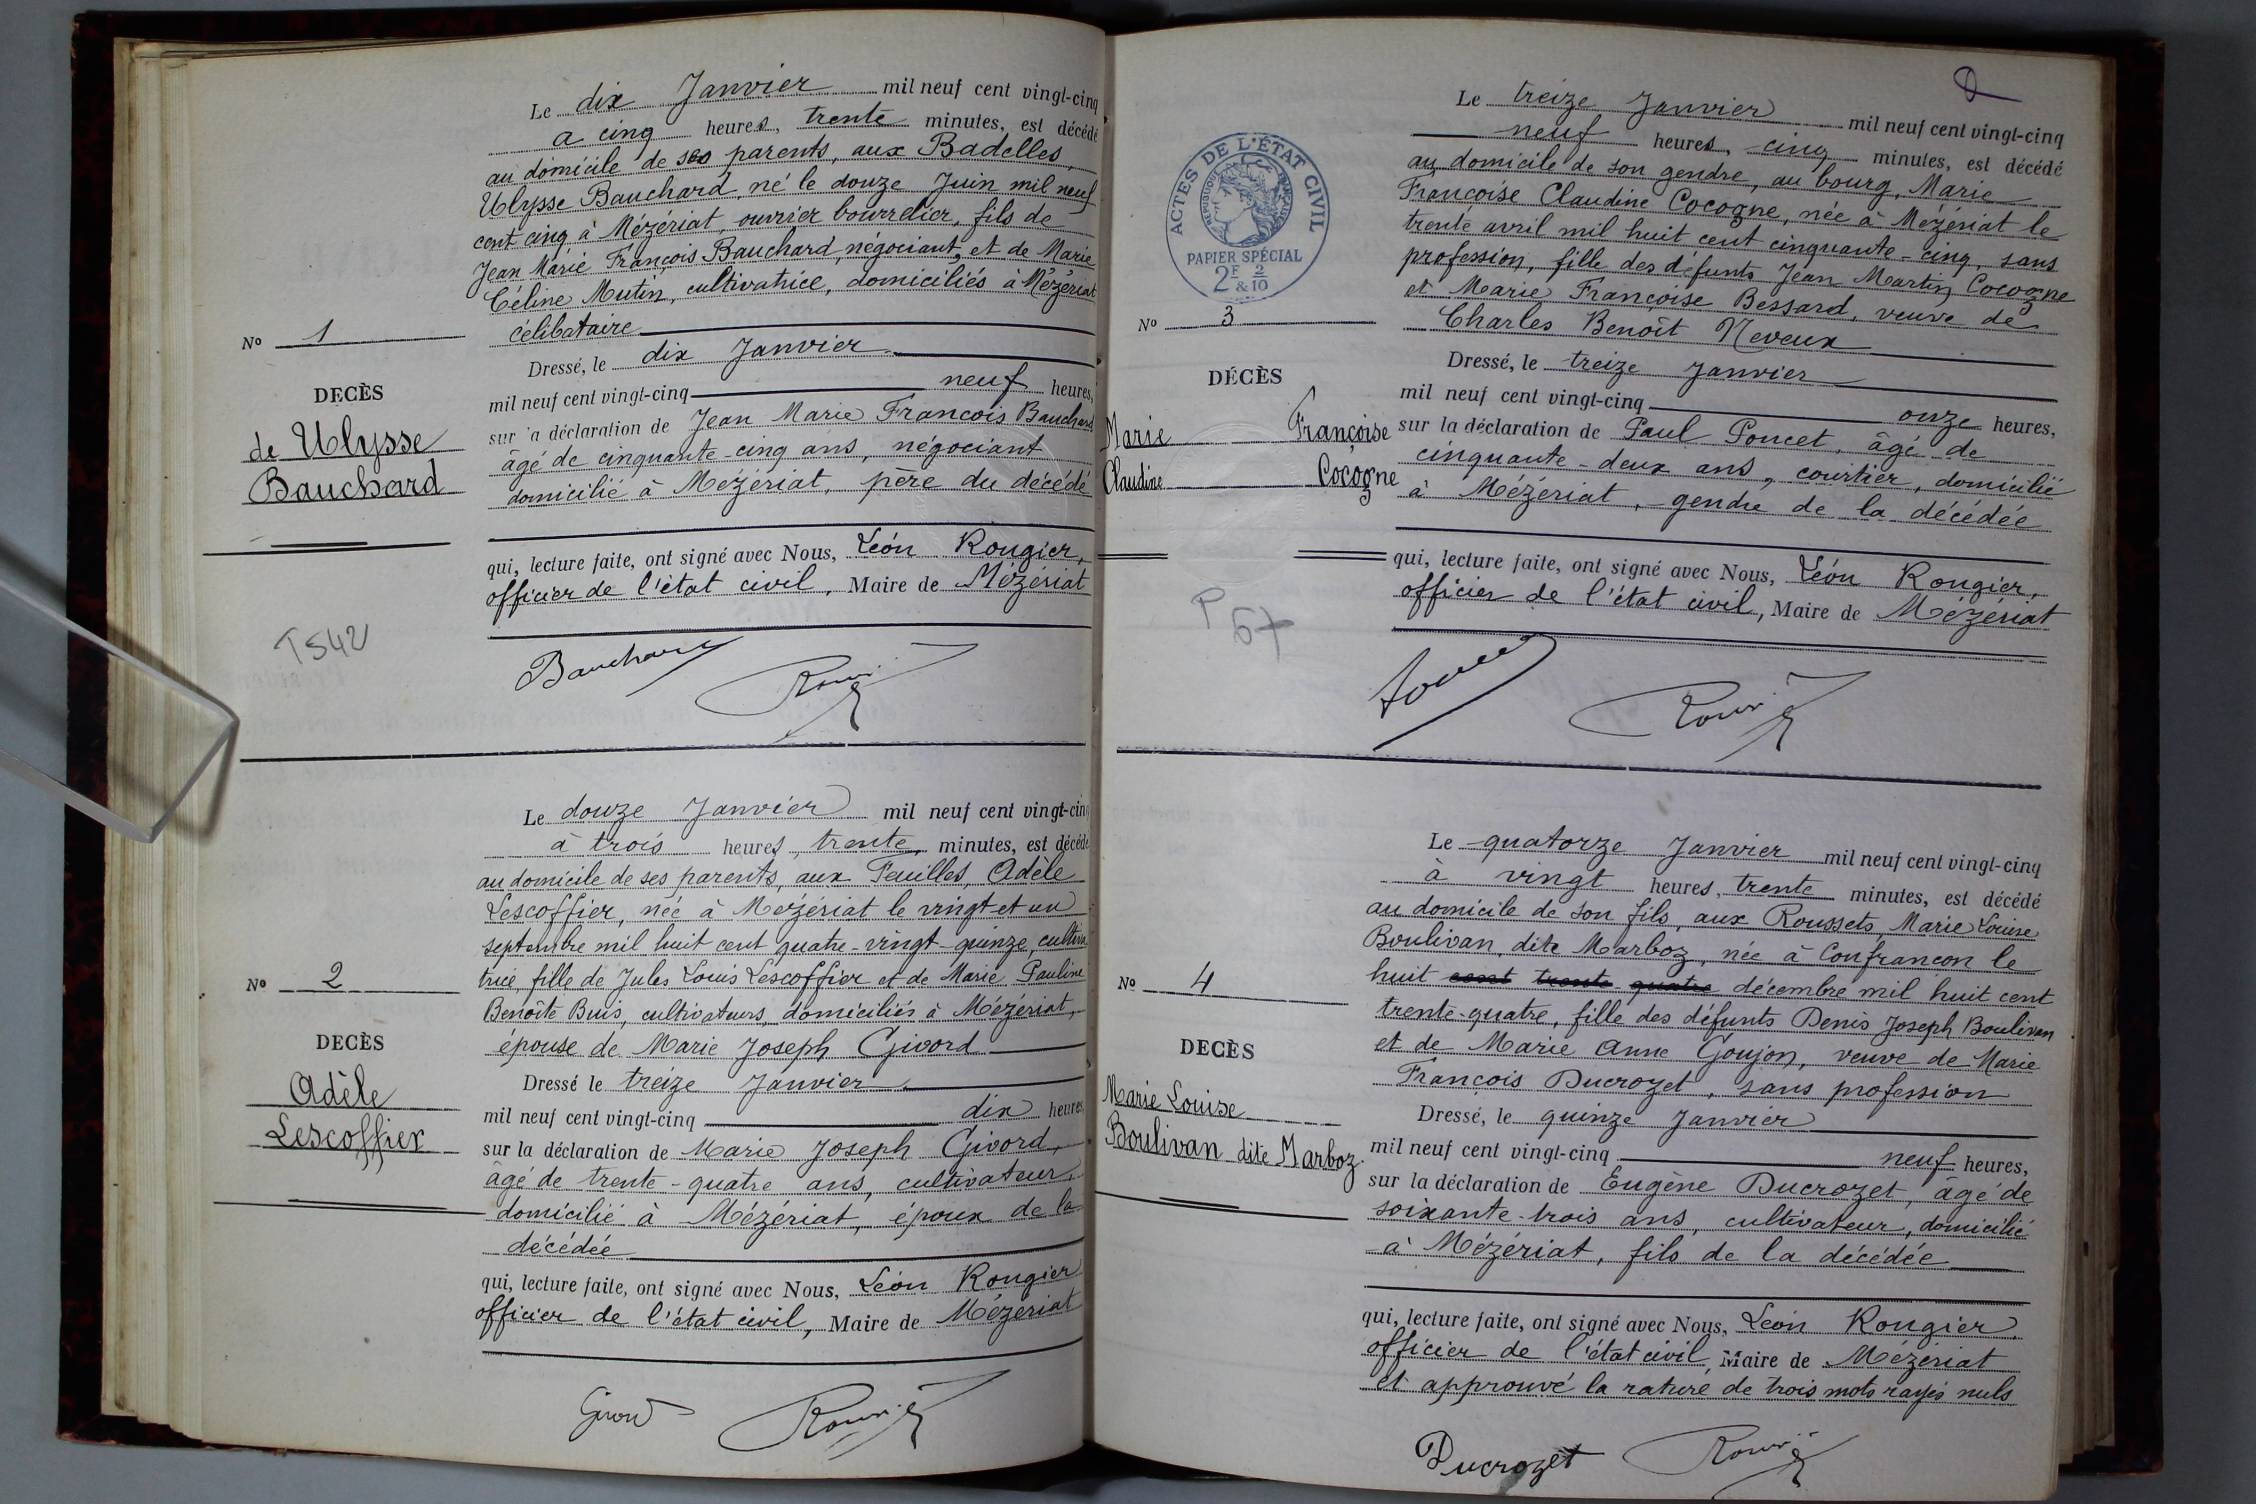 Le dix Janvier mil neuf cent vingt-cinq
a cinq heures, trente minutes, est décédé
au domicile de ses parents, aux Badelles,
Ulysse Bauchard, né le douze Juin mil neuf
cent cinq à Mézériat, ouvrier bourrelier, fils de
Jean Marie François Bauchard, négociant, et de Marie
Céline Mutin, cultivatrice, domiciliés à Mézériat
célibataire
No 1
DECÈS
de Ulysse
Bauchard
Dressé, le dix Janvier
mil neuf cent vingt-cinq neuf heures,
sur la déclaration de Jean Marie François Bauchard
âgé de cinquante-cinq ans, négociant
domicilié à Mézériat, père du décédé
qui, lecture faite, ont signé avec Nous, Léon Rougier,
officier de l'état civil, Maire de Mézériat
T542
Bauchard
Le douze Janvier mil neuf cent vingt-cinq
à trois heures, trente, minutes, est décédé
au domicile de ses parents, aux Feuilles, Adèle
Lescoffier, née à Mézériat le vingt et un
septembre mil huit cent quatre-vingt-quinze, cultiva
trice, fille de Jules Louis Lescoffier et de Marie Pauline
Benoîte Buis, cultivateurs, domiciliés à Mézériat,
épouse de Marie Joseph Givord
No 2
DECÈS
Adèle
Lescoffier
Dressé le treize Janvier
mil neuf cent vingt-cinq dix heures,
sur la déclaration de Marie Joseph Givord,
âgé de trente-quatre ans, cultivateur,
domicilié à Mézériat, époux de la
décédée
qui, lecture faite, ont signé avec Nous, Léon Rougier
officier de l'état civil, Maire de Mézériat
Givord
Le treize Janvier mil neuf cent vingt-cinq
neuf heures, cinq minutes, est décédé
au domicile de son gendre, au bourg, Marie
Françoise Claudine Cocogne, née à Mézériat le
trente avril mil huit cent cinquante-cinq, sans
profession, fille des défunts Jean Martin Cocogne
et Marie Françoise Bessard, veuve de
Charles Benoît Neveux
ACTES DE L'ÉTAT CIVIL
RÉPUBLIQUE FRANÇAISE
PAPIER SPÉCIAL
2F & 2/10
No 3
DÉCÈS
Marie Françoise
Claudine Cocogne
Dressé, le treize Janvier
mil neuf cent vingt-cinq onze heures,
sur la déclaration de Paul Poncet, âgé de
cinquante-deux ans, courtier, domicilié
à Mézériat, gendre de la décédée
qui, lecture faite, ont signé avec Nous, Léon Rougier,
officier de l'état civil, Maire de Mézériat
P 67
Le quatorze Janvier mil neuf cent vingt-cinq
à vingt heures, trente minutes, est décédé
au domicile de son fils, aux Roussets, Marie Louise
Boulivan, dite Marboz, née à Confrancon le
huit cent trente quatre décembre mil huit cent
trente-quatre, fille des défunts Denis Joseph Boulivan
et de Marie Anne Goujon, veuve de Marie
François Ducrozet, sans profession
No 4
DECÈS
Marie Louise
Boulivan dite Marboz
Dressé, le quinze Janvier
mil neuf cent vingt-cinq neuf heures,
sur la déclaration de Eugène Ducrozet, âgé de
soixante-trois ans, cultivateur, domicilié
à Mézériat, fils de la décédée
qui, lecture faite, ont signé avec Nous, Léon Rougier,
officier de l'état civil, Maire de Mézériat
et approuvé la rature de trois mots rayés nuls
Ducrozet